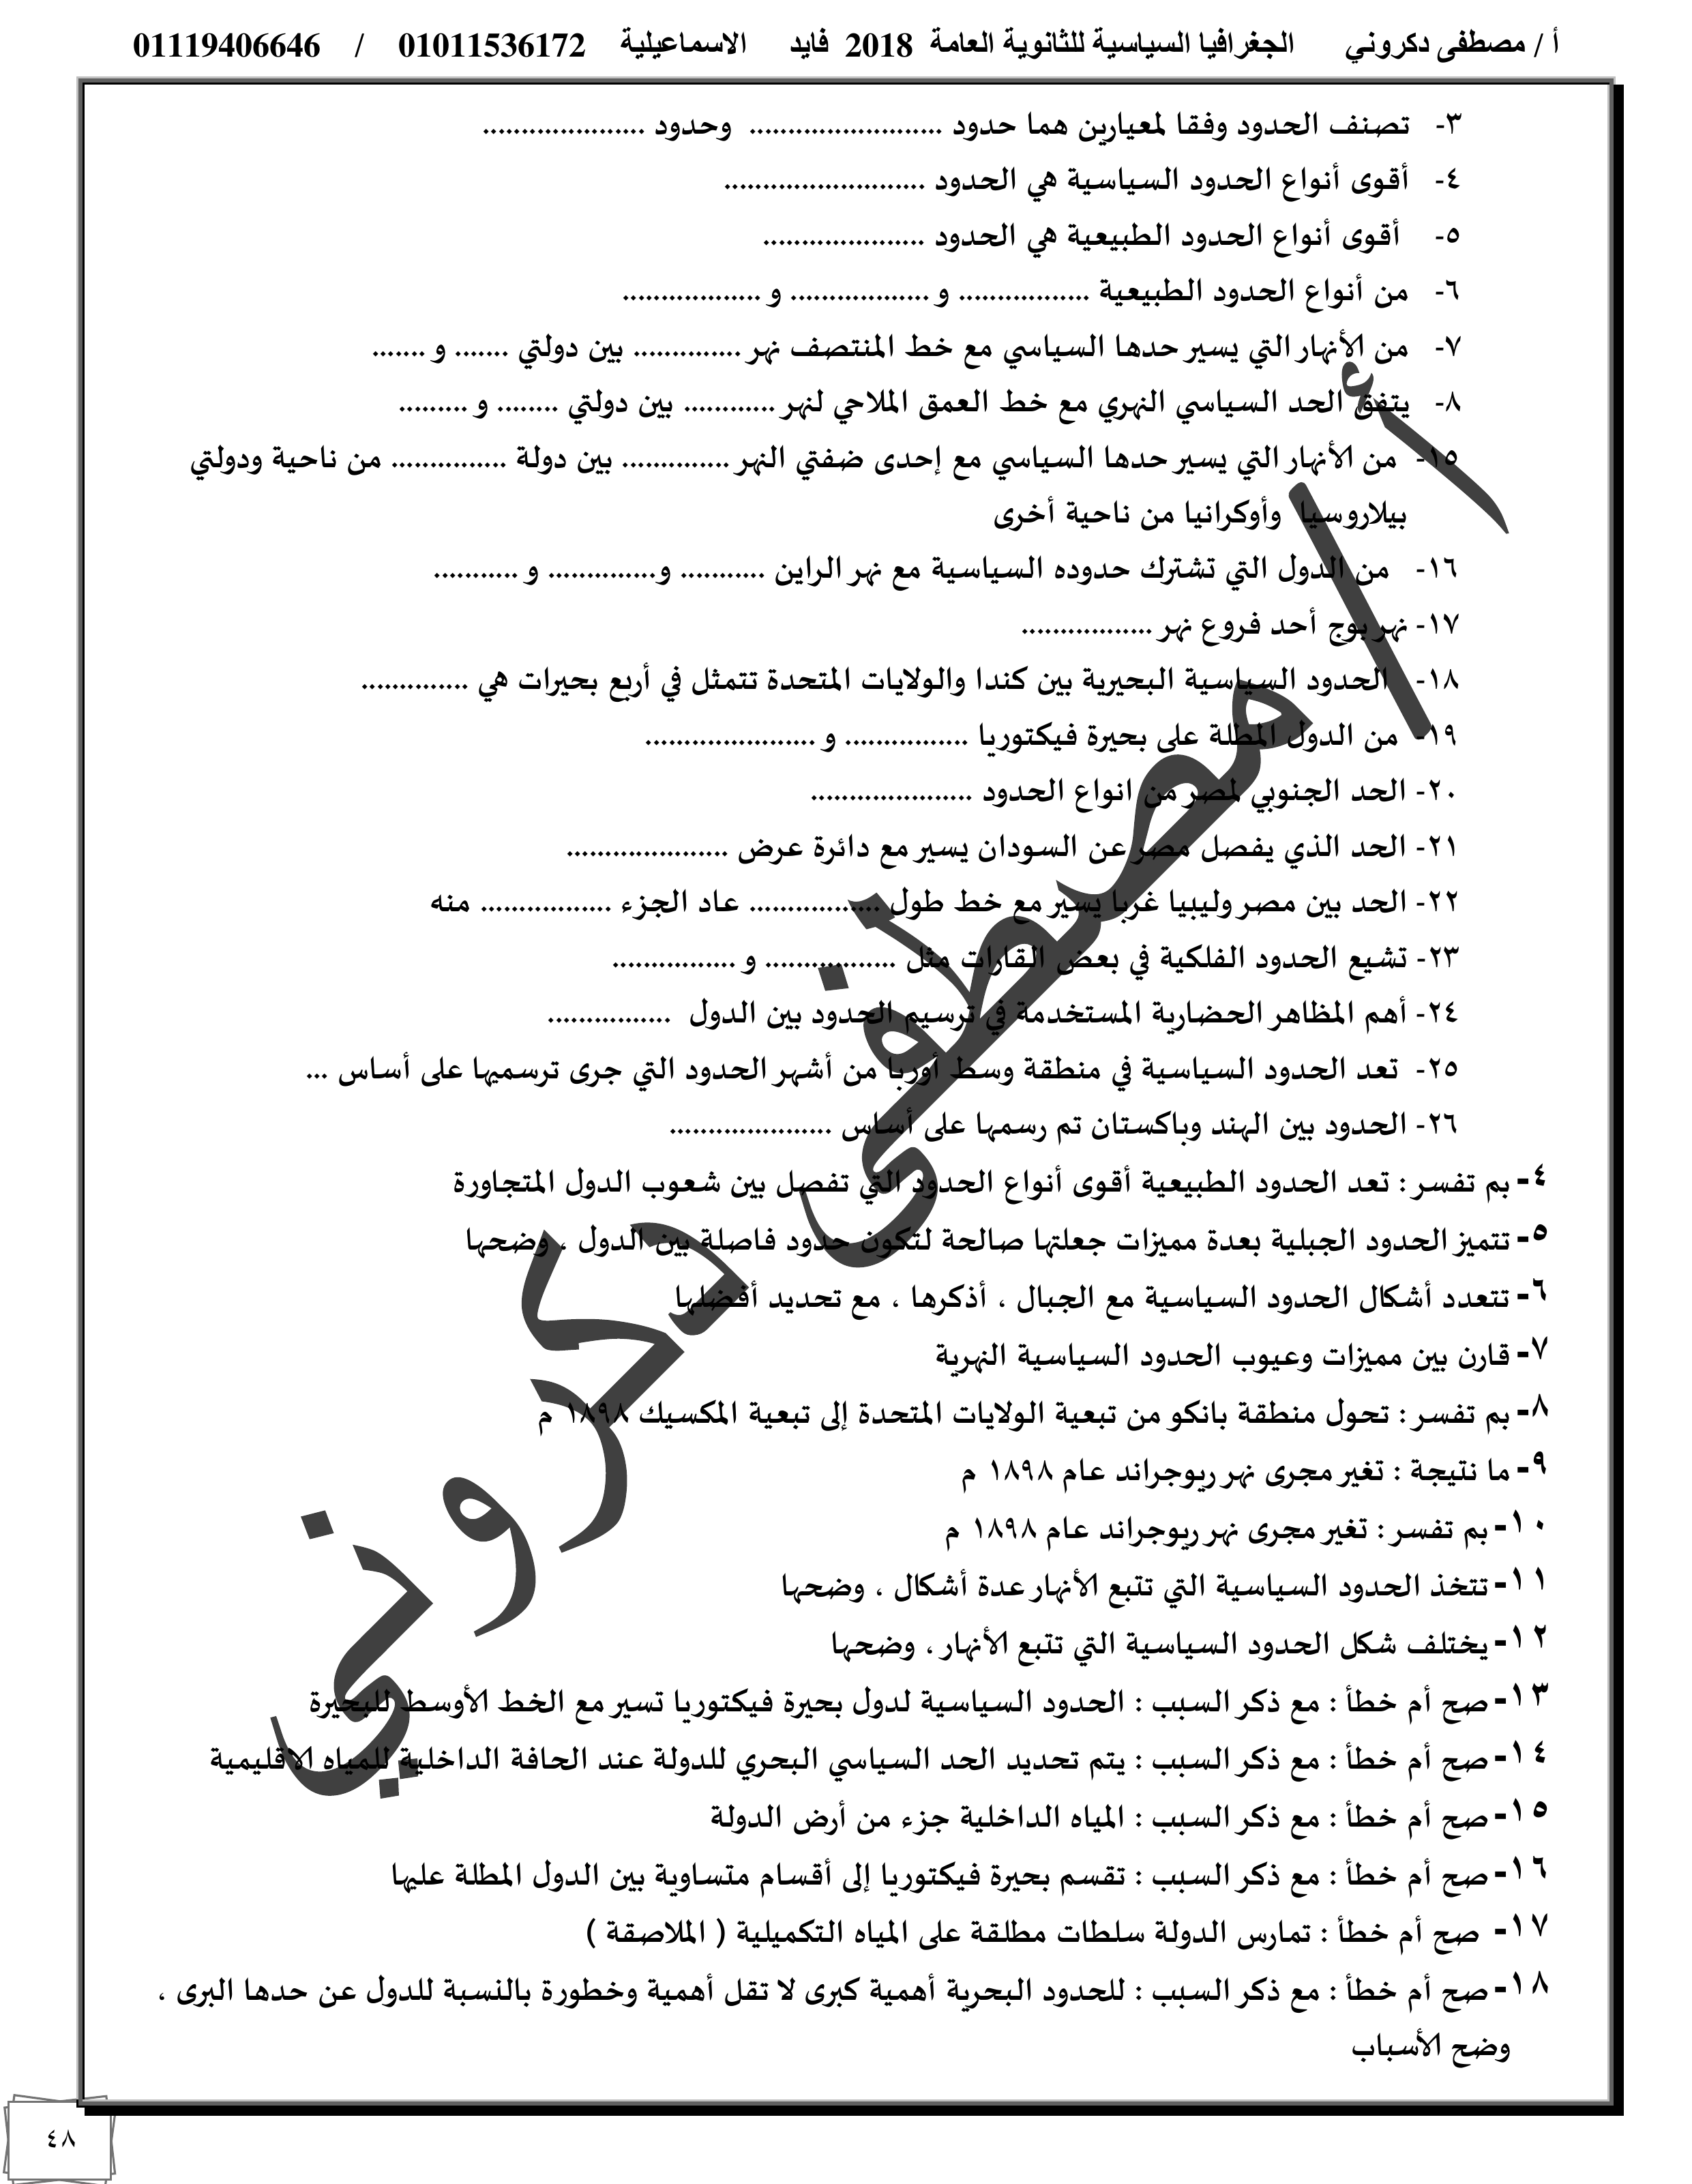 أ / مصطفى دكروني الجغرافيا السياسية للثانوية العامة 2018 فايد الاسماعيلية 01011536172 / 01119406646
٣- تصنف الحدود وفقا لمعيارين هما حدود ......................... وحدود .....................
٤- أقوى أنواع الحدود السياسية هي الحدود ..........................
٥- أقوى أنواع الحدود الطبيعية هي الحدود .....................
٦- من أنواع الحدود الطبيعية ................. و .................. و ..................
٧- من الأنهار التي يسير حدها السياسي مع خط المنتصف نهر .............. بين دولتي ....... و .......
٨- يتفق الحد السياسي النهري مع خط العمق الملاحي لنهر ............ بين دولتي ........ و .........
١٥- من الأنهار التي يسير حدها السياسي مع إحدى ضفتي النهر .............. بين دولة ............... من ناحية ودولتي
بيلاروسيا وأوكرانيا من ناحية أخرى
١٦- من الدول التي تشترك حدوده السياسية مع نهر الراين ........... و.............. و ...........
١٧- نهر بوج أحد فروع نهر .................
١٨- الحدود السياسية البحيرية بين كندا والولايات المتحدة تتمثل في أربع بحيرات هي ..............
١٩- من الدول المطلة على بحيرة فيكتوريا ................ و ......................
٢٠- الحد الجنوبي لمصر من انواع الحدود .....................
٢١- الحد الذي يفصل مصر عن السودان يسير مع دائرة عرض .....................
٢٢- الحد بين مصر وليبيا غربا يسير مع خط طول ................. عاد الجزء ................. منه
٢٣- تشيع الحدود الفلكية في بعض القارات مثل ................. و ................
٢٤- أهم المظاهر الحضارية المستخدمة في ترسيم الحدود بين الدول ................
٢٥- تعد الحدود السياسية في منطقة وسط أوربا من أشهر الحدود التي جرى ترسميها على أساس ...
٢٦- الحدود بين الهند وباكستان تم رسمها على أساس .....................
٤- بم تفسر : تعد الحدود الطبيعية أقوى أنواع الحدود التي تفصل بين شعوب الدول المتجاورة
٥- تتميز الحدود الجبلية بعدة مميزات جعلتها صالحة لتكون حدود فاصلة بين الدول ، وضحها
٦- تتعدد أشكال الحدود السياسية مع الجبال ، أذكرها ، مع تحديد أفضلها
٧- قارن بين مميزات وعيوب الحدود السياسية النهرية
٨- بم تفسر : تحول منطقة بانكو من تبعية الولايات المتحدة إلى تبعية المكسيك ١٨٩٨ م
٩- ما نتيجة : تغير مجرى نهر ريوجراند عام ١٨٩٨ م
١٠- بم تفسر : تغير مجرى نهر ريوجراند عام ١٨٩٨ م
١١- تتخذ الحدود السياسية التي تتبع الأنهار عدة أشكال ، وضحها
١٢- يختلف شكل الحدود السياسية التي تتبع الأنهار ، وضحها
١٣- صح أم خطأ : مع ذكر السبب : الحدود السياسية لدول بحيرة فيكتوريا تسير مع الخط الأوسط للبحيرة
١٤- صح أم خطأ : مع ذكر السبب : يتم تحديد الحد السياسي البحري للدولة عند الحافة الداخلية للمياه الاقليمية
١٥- صح أم خطأ : مع ذكر السبب : المياه الداخلية جزء من أرض الدولة
١٦- صح أم خطأ : مع ذكر السبب : تقسم بحيرة فيكتوريا إلى أقسام متساوية بين الدول المطلة عليها
١٧- صح أم خطأ : تمارس الدولة سلطات مطلقة على المياه التكميلية ( الملاصقة )
١٨- صح أم خطأ : مع ذكر السبب : للحدود البحرية أهمية كبرى لا تقل أهمية وخطورة بالنسبة للدول عن حدها البرى ،
وضح الأسباب
أ / مصطفى دكروني
٤٨